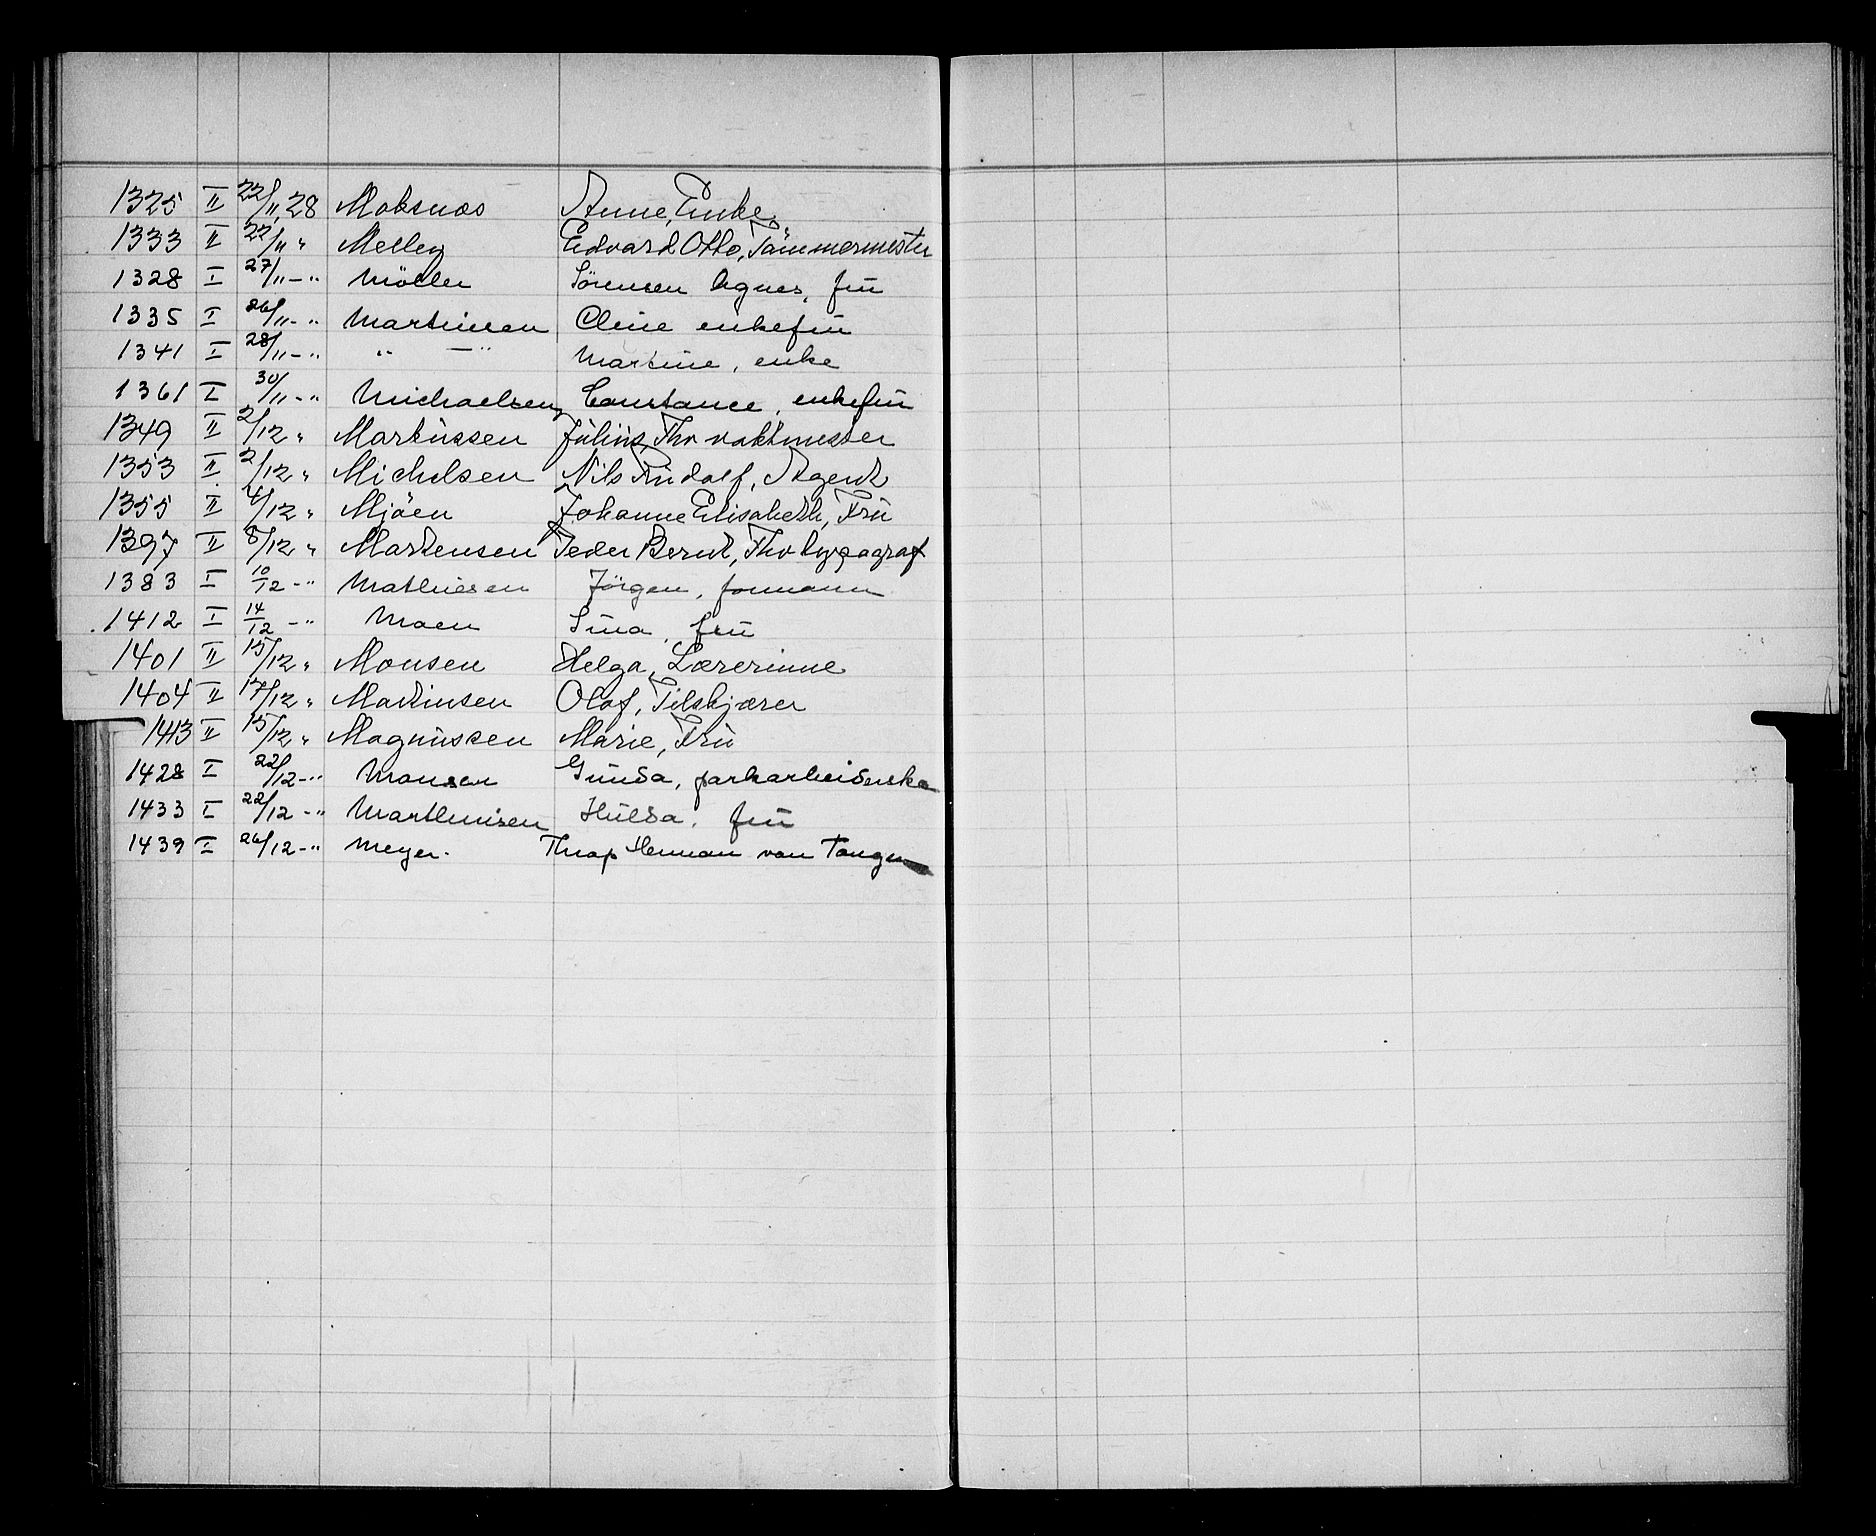 1325 II 22/11 28 Moksnæs Anne, Enke
1333 II 22/11 " Melley Edvard Otto, Tømmermester
1328 I 27/11 - " Möller Sörensen Agnes, frü
1335 I 26/11 - " Martinsen Oline enkefrü
1341 I 28/11 - " " — " Martine, enke
1361 I 30/11 - " Michaelsen Constance, enkefrü
1349 II 2/12 " Markussen Julius, Fhv vaktmester
1353 II 2/12 " Michelsen Nils Rudolf, Agent
1355 II 4/12 " Mjöen Johanne Elisabeth, Frü
1397 II 8/12 " Martensen Peder Bernt, Fhv typograf
1383 I 10/12 - " Mathiesen Jörgen, formann
1412 I 14/12 - " Moen Sina, frü
1401 II 15/12 " Monsen Helga, Lærerinne
1404 II 17/12 " Martinsen Olaf, Filskjærer
1413 II 15/12 " Magnussen Marie, Frü
1428 I 22/12 - " Monsen Gunda, parkarbeiderske
1433 I 22/12 - " Marthinisen Hulda, frü
1439 I 26/12 - " Meyer. Thrap Herman von Tangen